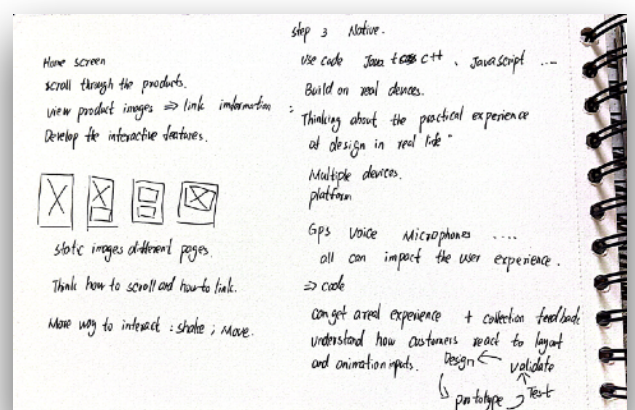 Home screen
scroll through the products.
view product images ⇒ link imformation
Develop the interactive features.
static images different pages.
Think how to scroll and how to link.
More way to interact : shake ; Move.
step 3 Native.
Use code Java C++ 、 JavaScript ....
Build on real devices.
Thinking about the practical experience
of design in real life"
Multiple devices.
platform
Gps Voice Microphones ....
all can impact the user experience.
⇒ code
can get a real experience + collection feedback
understand how customers react to layout
and animation inputs.
Design ← validate
↳ prototype → Test